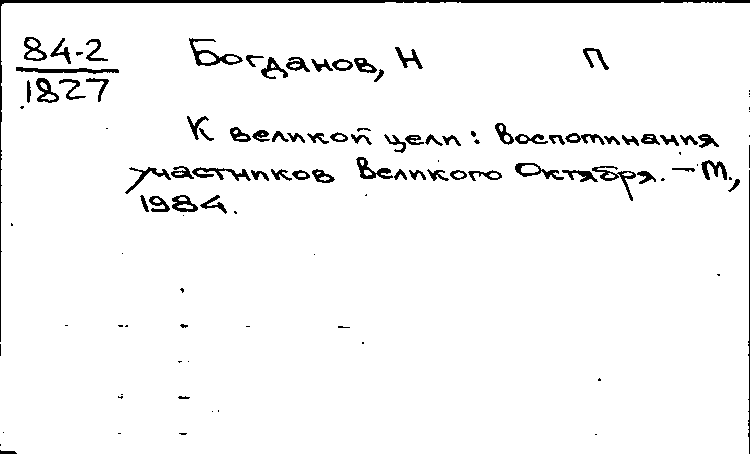 84-2 Богданов, Н П
1827
К великой цели: Воспоминания
участников Великого Октября. - М.,
1984.